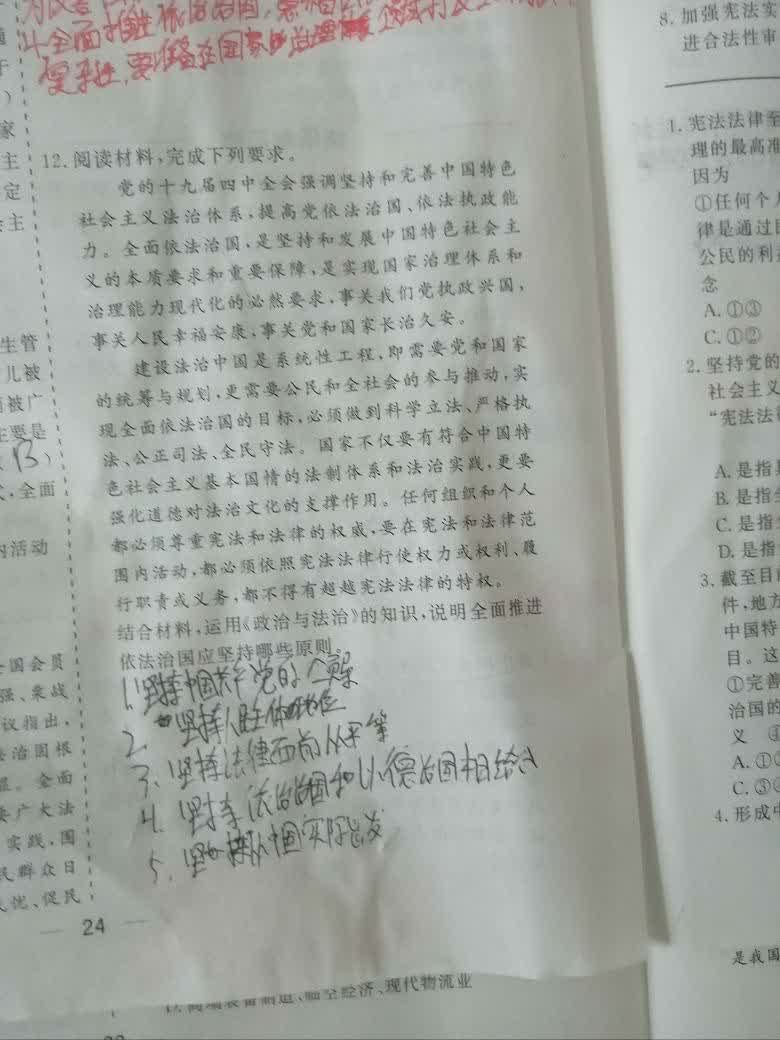 12.阅读材料,完成下列要求。
党的十九届四中全会强调坚持和完善中国特色
社会主义法治体系,提高党依法治国、依法执政能
力。全面依法治国,是坚持和发展中国特色社会主
义的本质要求和重要保障,是实现国家治理体系和
治理能力现代化的必然要求,事关我们党执政兴国,
事关人民幸福安康,事关党和国家长治久安。
建设法治中国是系统性工程,即需要党和国家
的统筹与规划,更需要公民和全社会的参与推动,实
现全面依法治国的目标,必须做到科学立法、严格执
法、公正司法、全民守法。国家不仅要有符合中国特
色社会主义基本国情的法制体系和法治实践,更要
强化道德对法治文化的支撑作用。任何组织和个人
都必须尊重宪法和法律的权威,要在宪法和法律范
围内活动,都必须依照宪法法律行使权力或权利、履
行职责或义务,都不得有超越宪法法律的特权。
结合材料,运用《政治与法治》的知识,说明全面推进
依法治国应坚持哪些原则。
1.坚持中国共产党的
2 坚持人民主体地位
3.坚持法律面前人人平等
4.坚持依法治国和以德治国相结合
5.坚持从中国实际出发
24
现代物流业
家
主
定
主
生管
儿被
被广
主要是
B)
,全面
内活动
国会员
强、乘战
议指出,
治国根
显。全面
要广大法
实践,国
民群众日
忧、促民
8.加强宪法实
进合法性审
1.宪法法律至
理的最高准
因为
①任何个人
律是通过
公民的利益
念
A.①③
C.①②
2.坚持党的
社会主义
“宪法法律
A.是指
B.是指
C.是指
D.是指
3.截至目前
件,地方
中国特
目。这
①完善
治国的
义
A.①
C.③
4.形成中
是我国